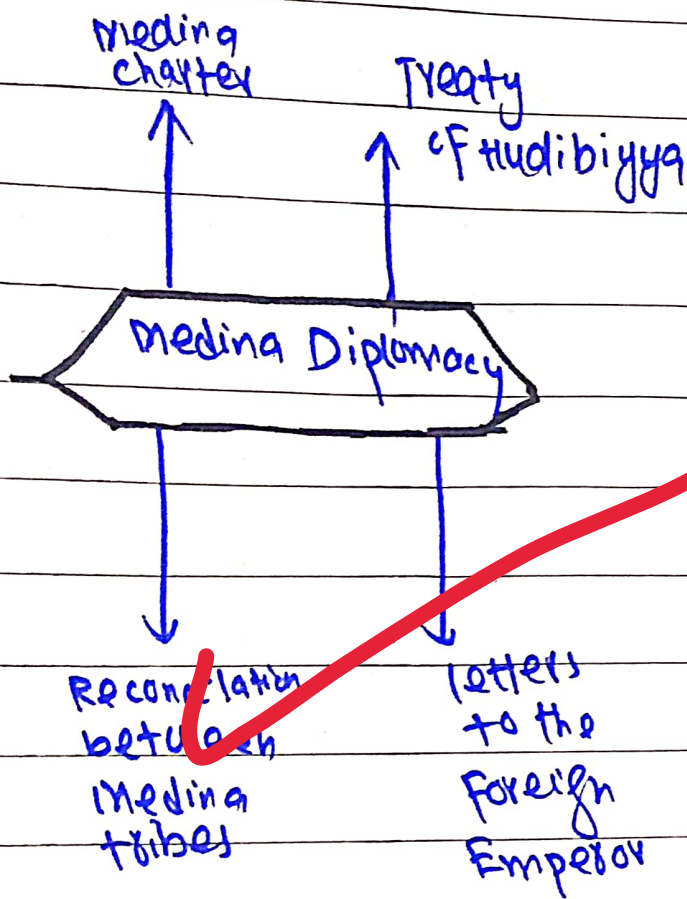 Medina
charter
Treaty
of Hudibiyya
Medina Diplomacy
Reconcilation
between
Medina
tribes
letters
to the
Foreign
Emperor